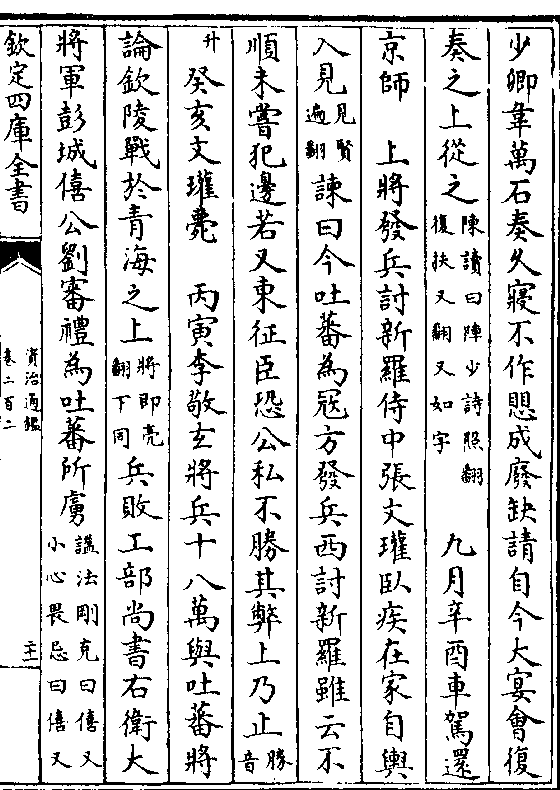 少卿韋萬石奏久寢不作懼成廢缺請自今大宴會復
奏之上從之陳讀曰陣少詩照翻復扶又翻又如字　九月辛酉車駕還
京師　上將發兵討新羅侍中張文瓘臥疾在家自輿
入見見賢遍翻諫曰今吐蕃為寇方發兵西討新羅雖云不
順未嘗犯邊若又東征臣恐公私不勝其弊上乃止勝音
升　癸亥文瓘薨　丙寅李敬玄將兵十八萬與吐蕃將
論欽陵戰於青海之上將即亮翻下同兵敗工部尚書右衛大
將軍彭城僖公劉審禮為吐蕃所虜諡法剛克曰僖又小心畏忌曰僖又
欽定四庫全書
資治通鑑
卷二百二